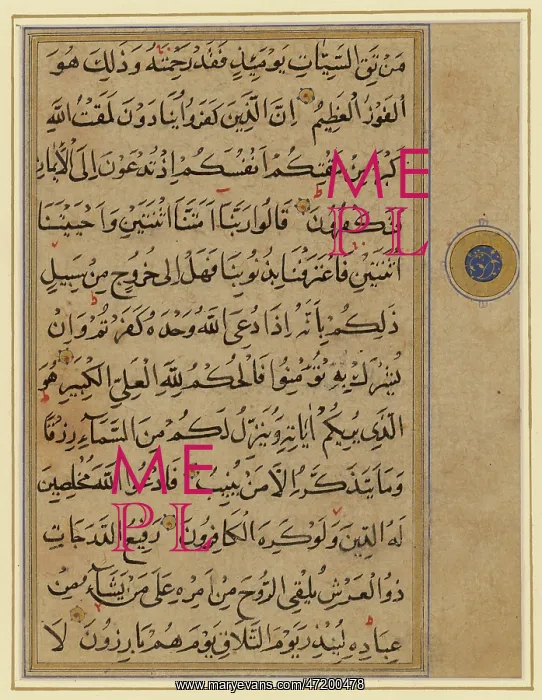 مَنْ تَقِ السَّيِّاتِ يَوْمَئِذٍ فَقَدْ رَحِمْتَهُ وَذٰلِكَ هُوَ
الْفَوْزُ الْعَظِيمُ اِنَّ الَّذِينَ كَفَرُوا يُنَادَوْنَ لَمَقْتُ اللّٰهِ
اَكْبَرُ مِنْ مَقْتِكُمْ اَنْفُسَكُمْ اِذْ تُدْعَوْنَ اِلَى الْاِيمَانِ
فَتَكْفُرُونَ قَالُوا رَبَّنَا اَمَتَّنَا اثْنَتَيْنِ وَاَحْيَيْتَنَا
اثْنَتَيْنِ فَاعْتَرَفْنَا بِذُنُوبِنَا فَهَلْ اِلٰى خُرُوجٍ مِنْ سَبِيلٍ
ذٰلِكُمْ بِاَنَّهُ اِذَا دُعِىَ اللّٰهُ وَحْدَهُ كَفَرْتُمْ وَاِنْ
يُشْرَكْ بِهِ تُؤْمِنُوا فَالْحُكْمُ لِلّٰهِ الْعَلِىِّ الْكَبِيرِ هُوَ
الَّذِى يُرِيكُمْ اٰيَاتِهِ وَيُنَزِّلُ لَكُمْ مِنَ السَّمَاءِ رِزْقًا
وَمَا يَتَذَكَّرُ اِلَّا مَنْ يُنِيبُ فَادْعُوا اللّٰهَ مُخْلِصِينَ
لَهُ الدِّينَ وَلَوْ كَرِهَ الْكَافِرُونَ رَفِيعُ الدَّرَجَاتِ
ذُو الْعَرْشِ يُلْقِى الرُّوحَ مِنْ اَمْرِهِ عَلٰى مَنْ يَشَاءُ مِنْ
عِبَادِهِ لِيُنْذِرَ يَوْمَ التَّلَاقِ يَوْمَ هُمْ بَارِزُونَ لَا
ME
PL
ME
PL
www.maryevans.com/47200478